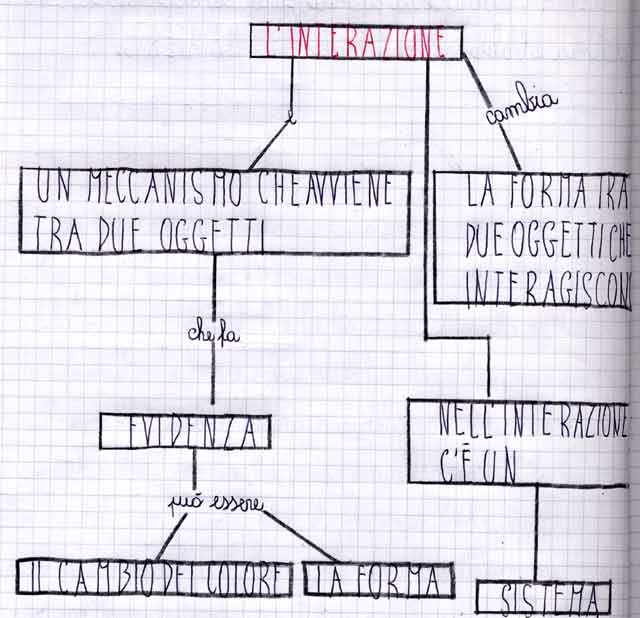 L'INTERAZIONE
è
cambia
UN MECCANISMO CHE AVVIENE
TRA DUE OGGETTI
LA FORMA TRA
DUE OGGETTI CHE
INTERAGISCON
che fa
EVIDENZA
NELL'INTERAZIONE
C'È UN
può essere
IL CAMBIO DEL COLORE
LA FORMA
SISTEMA